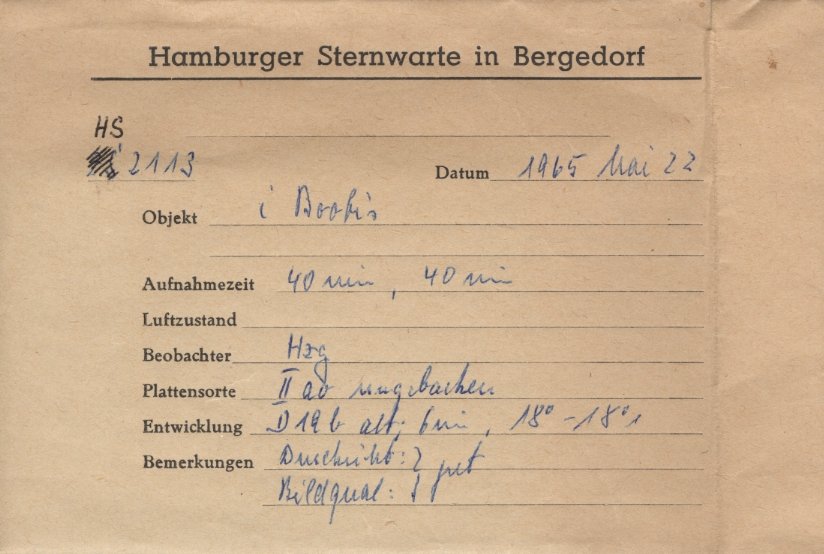 Hamburger Sternwarte in Bergedorf
HS
2113 Datum 1965 Mai 22
Objekt i Bootis
Aufnahmezeit 40 min, 40 min
Luftzustand
Beobachter Hzg
Plattensorte II ao ungebacken
Entwicklung D19b alt; 6 min, 18° - 18°,
Bemerkungen Durchsicht: } gut
Bildqual: